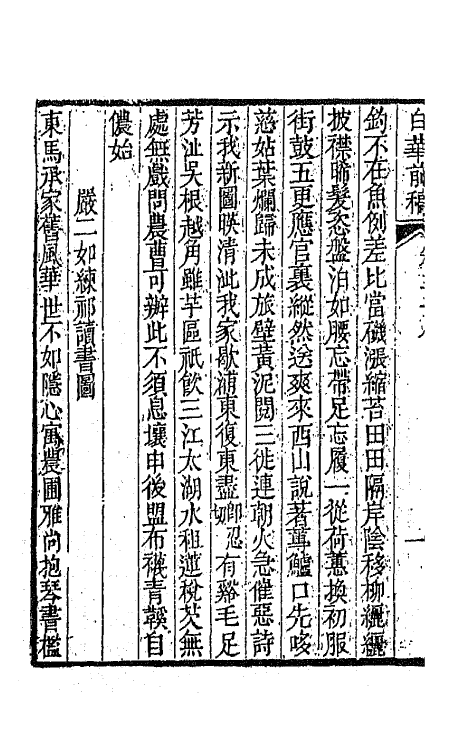 白華前稿
鈎不在魚倒差比當磯漲縮苔田田隔岸陰移柳纚纚
披襟晞髮恣盤泊如腰忘帶足忘履一從荷蕙換初服
街鼓五更應官裏縱然送爽來西山說著蓴鱸口先哆
茨姑葉爛歸未成旅壁黃泥閱三徙連朝火急催惡詩
示我新圖暎清泚我家歇浦東復東盡如鄞忍有谿毛足
芳沚吳根越角雖芋區祇飲三江太湖水租蓮稅芡無
處無戲問農曹可辦此不須息壤申後盟布襪青鞵自
儂始
嚴二如練祁讀書圖
東馬承家舊風華世不如隱心寓農圃雅尚抱琴書檻